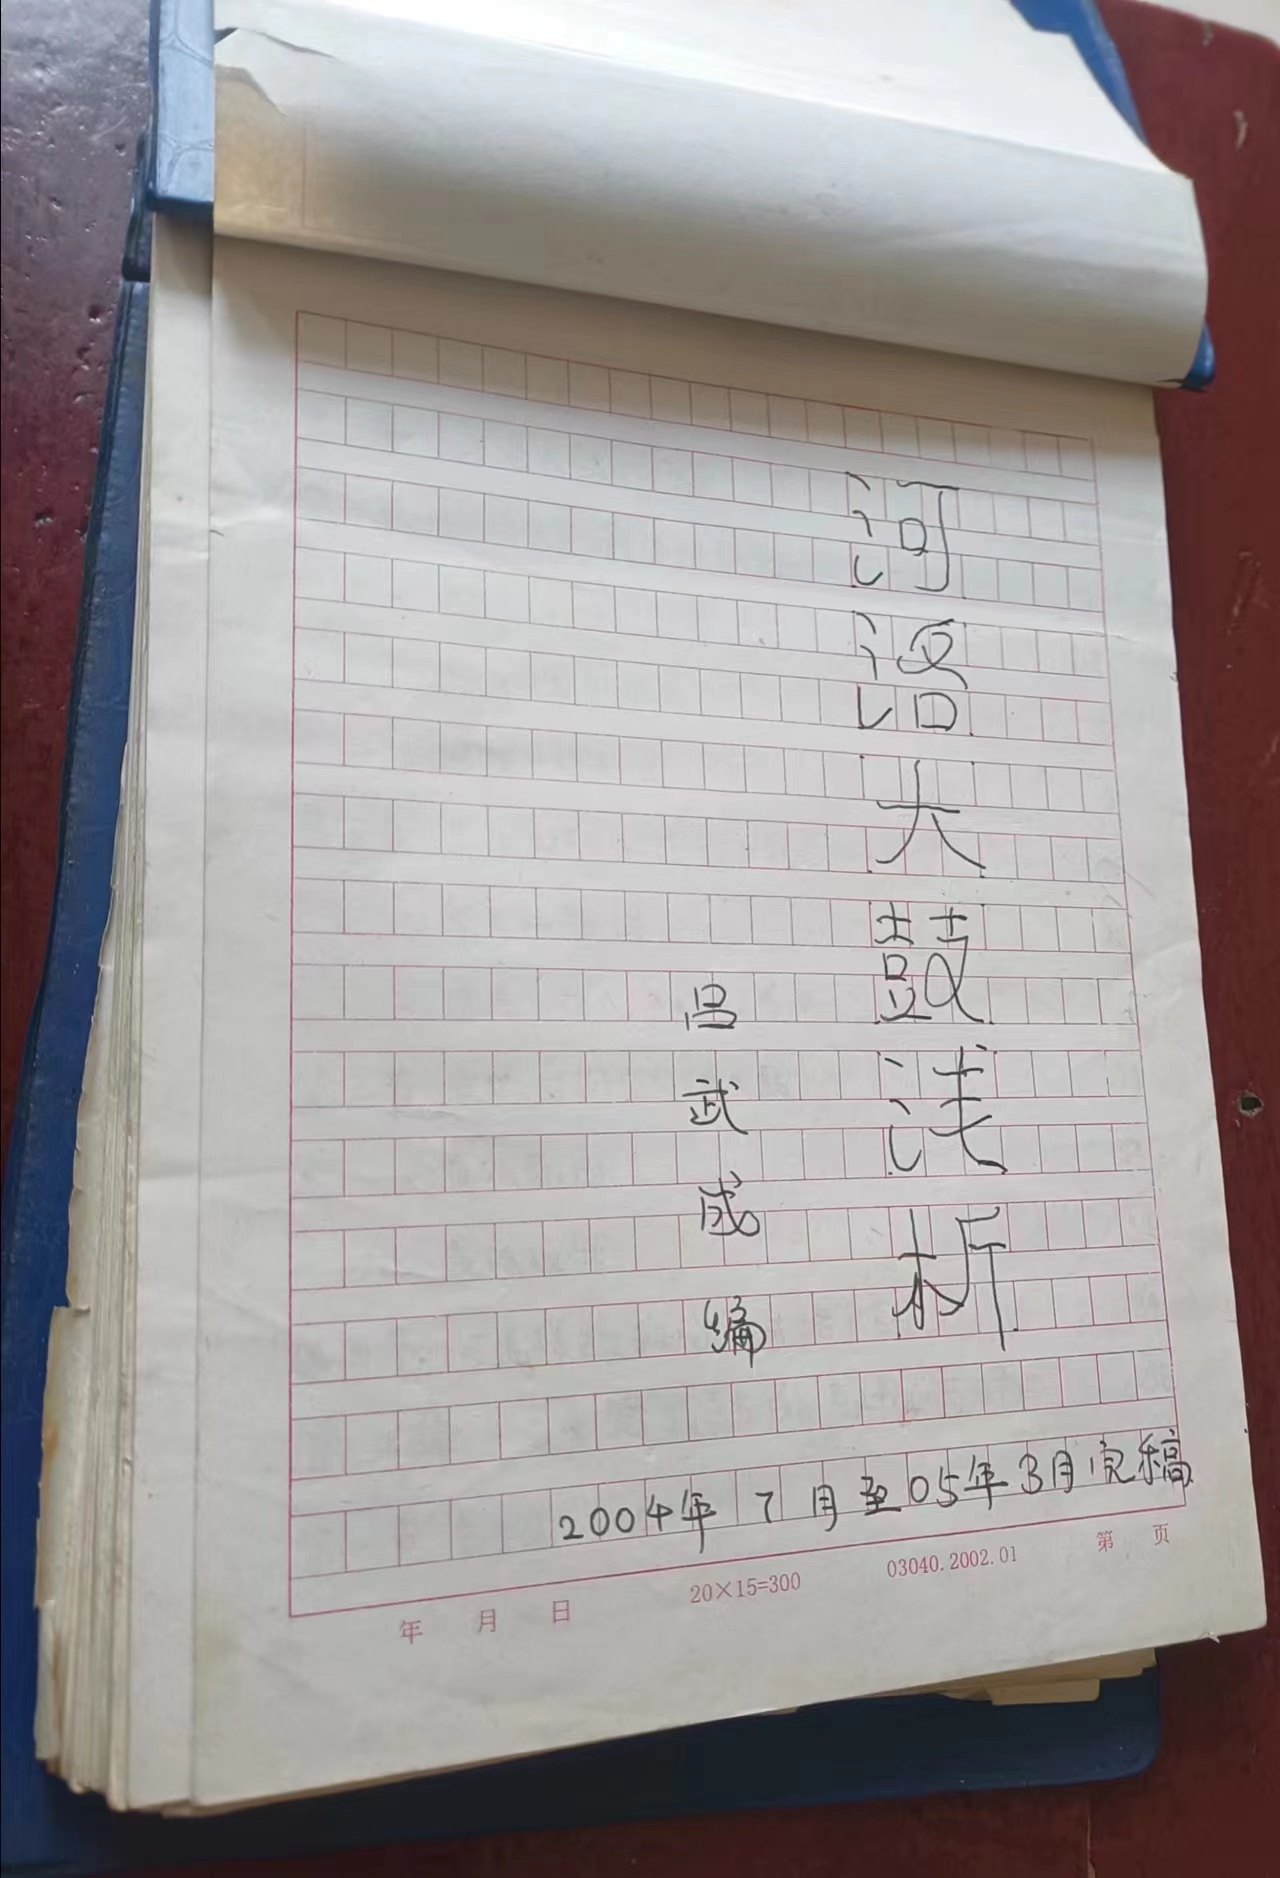 河洛大鼓浅析
吕武成编
2004年7月至05年3月完稿
年 月 日 20×15=300 03040.2002.01 第 页